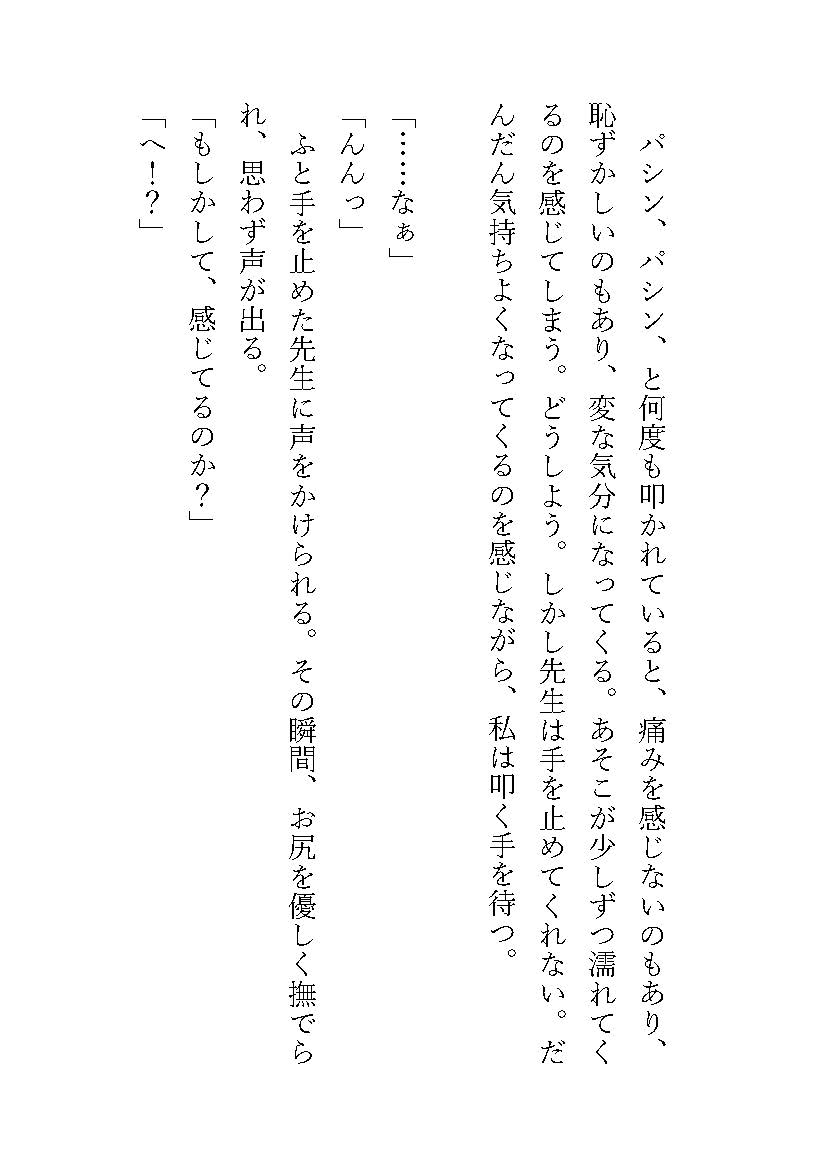 パシン、パシン、と何度も叩かれていると、痛みを感じないのもあり、
恥ずかしいのもあり、変な気分になってくる。あそこが少しずつ濡れてく
るのを感じてしまう。どうしよう。しかし先生は手を止めてくれない。だ
んだん気持ちよくなってくるのを感じながら、私は叩く手を待つ。
「……なぁ」
「んんっ」
　ふと手を止めた先生に声をかけられる。その瞬間、お尻を優しく撫でら
れ、思わず声が出る。
「もしかして、感じてるのか？」
「へ！？」